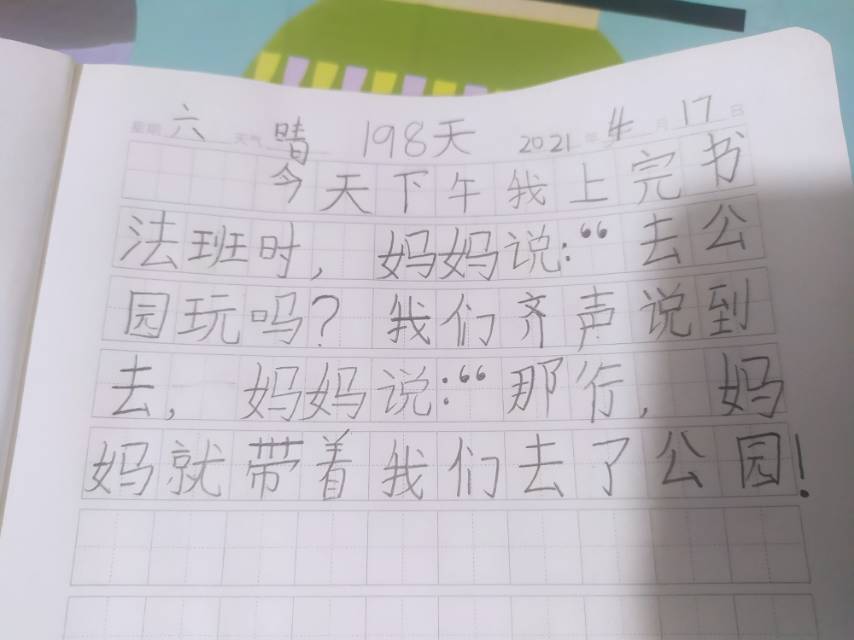 星期 六 天气 晴 198天 2021 年 4 月 17 日
今天下午我上完书
法班时，妈妈说:“去公
园玩吗？我们齐声说到
去，妈妈说:“那行，妈
妈就带着我们去了公园!